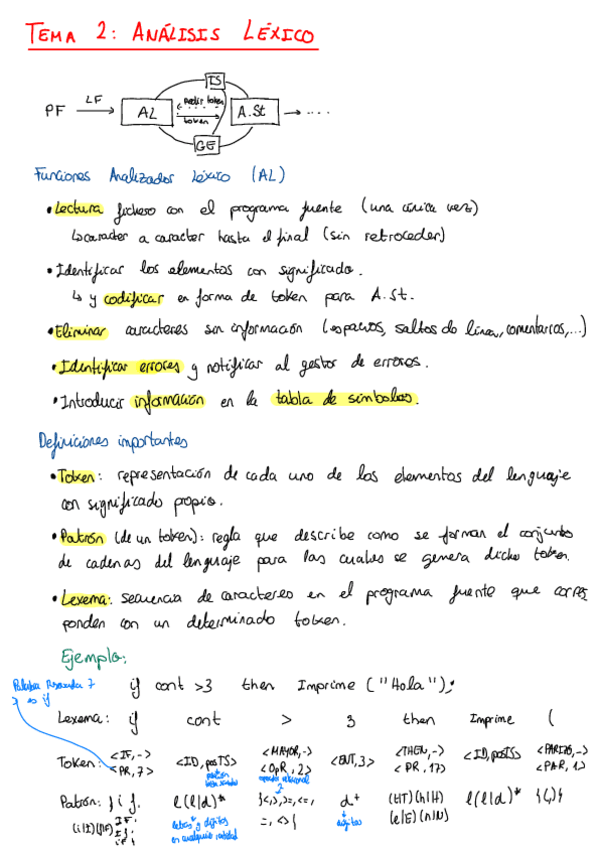 TEMA 2: ANÁLISIS LÉXICO
TS
PF LF AL pedir token A.St ....
token
GE
Funciones Analizador Léxico (AL)
• Lectura fichero con el programa fuente (una única vez)
↳ caracter a caracter hasta el final (sin retroceder)
• Identificar los elementos con significado.
↳ y codificar en forma de token para A.St.
• Eliminar caracteres sin información (espacios, saltos de línea, comentarios,...)
• Identificar errores y notificar al gestor de errores.
• Introducir información en la tabla de símbolos.
Definiciones importantes
• Token: representación de cada uno de los elementos del lenguaje
con significado propio.
• Patrón (de un token): regla que describe como se forman el conjunto
de cadenas del lenguaje para las cuales se genera dicho token.
• Lexema: secuencia de caracteres en el programa fuente que corres
ponden con un determinado token.
Ejemplo:
Palabra Reservada 7
es if
if cont >3 then Imprime ("Hola");
Lexema: if cont > 3 then Imprime (
Token: <IF,-> <ID,posTS> <MAYOR,-> <ENT,3> <THEN,-> <ID,posTS> <PARIZQ,->
<PR,7> <OpR,2> <PR,17> <PAR,1>
operador relacional
2
Patrón: { if, l(l|d)* {<,>,>=,<=, d+ (t|T)(h|H) l(l|d)* {(,)}
(i|I)(f|F) If, letras y dígitos =,<>} dígitos (e|E)(n|N)
en cualquier cantidad